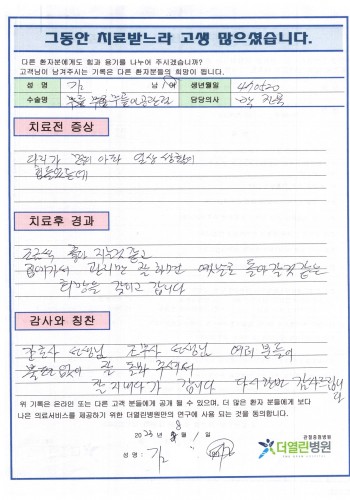 그동안 치료받느라 고생 많으셨습니다.
다른 환자분에게도 힘과 용기를 나누어 주시겠습니까?
고객님이 남겨주시는 기록은 다른 환자분들의 희망이 됩니다.
성 명 김 남 생년월일 470520
수술명 무릎 인공관절 담당의사 진욱
치료전 증상
다리가 많이 아파 일상 생활이
힘들었는데
치료후 경과
조금씩 좋아 지는것 같고
관리만 잘 하면 예전으로 돌아 갈것 같은
희망을 갖이고 갑니다
감사와 칭찬
간호사 선생님 조무사 선생님 여러 분들이
불편없이 잘 돌봐 주셔서
잘 지내다가 갑니다 다시한번 감사드립니다
위 기록은 온라인 또는 다른 고객 분들에게 공개 될 수 있으며, 더 많은 환자 분들에게 보다
나은 의료서비스를 제공하기 위한 더열린병원만의 연구에 사용 되는 것을 동의합니다.
2023 8 1 일
성명 : 김
관절중점병원
더열린병원